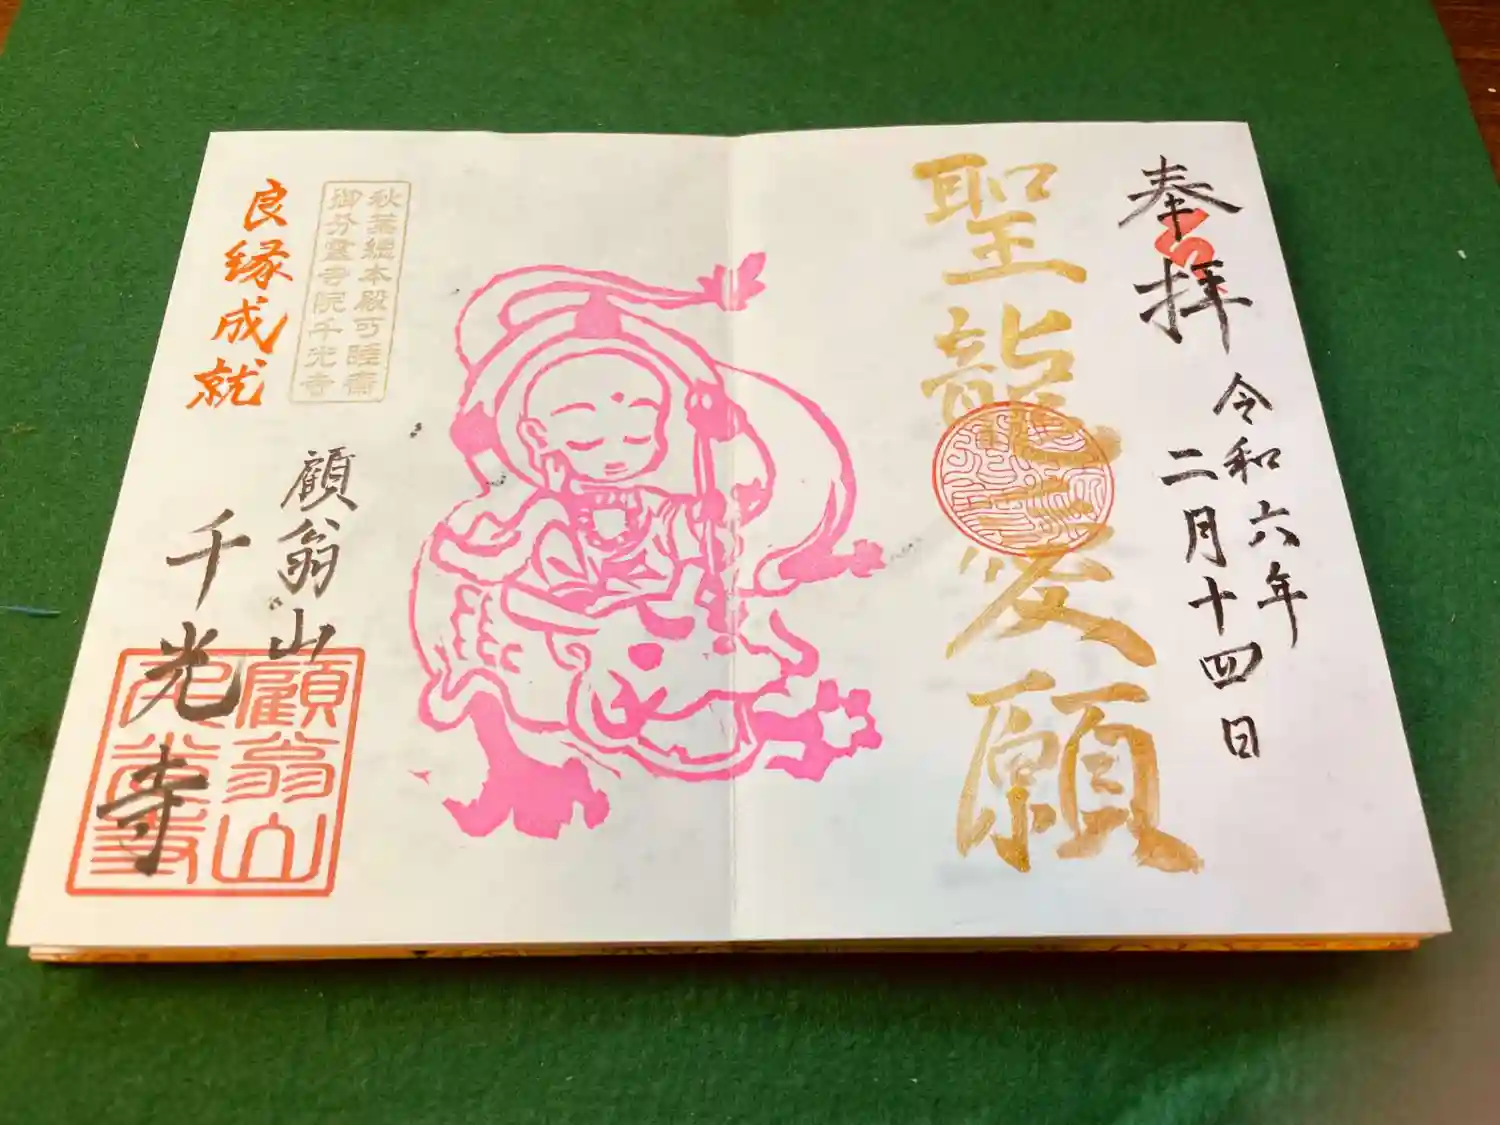 奉拝
令和六年
二月十四日
聖龍愛願
秋葉總本殿可睡斎
御分霊寺院千光寺
良縁成就
顧翁山
千光寺
顧翁山
光寺